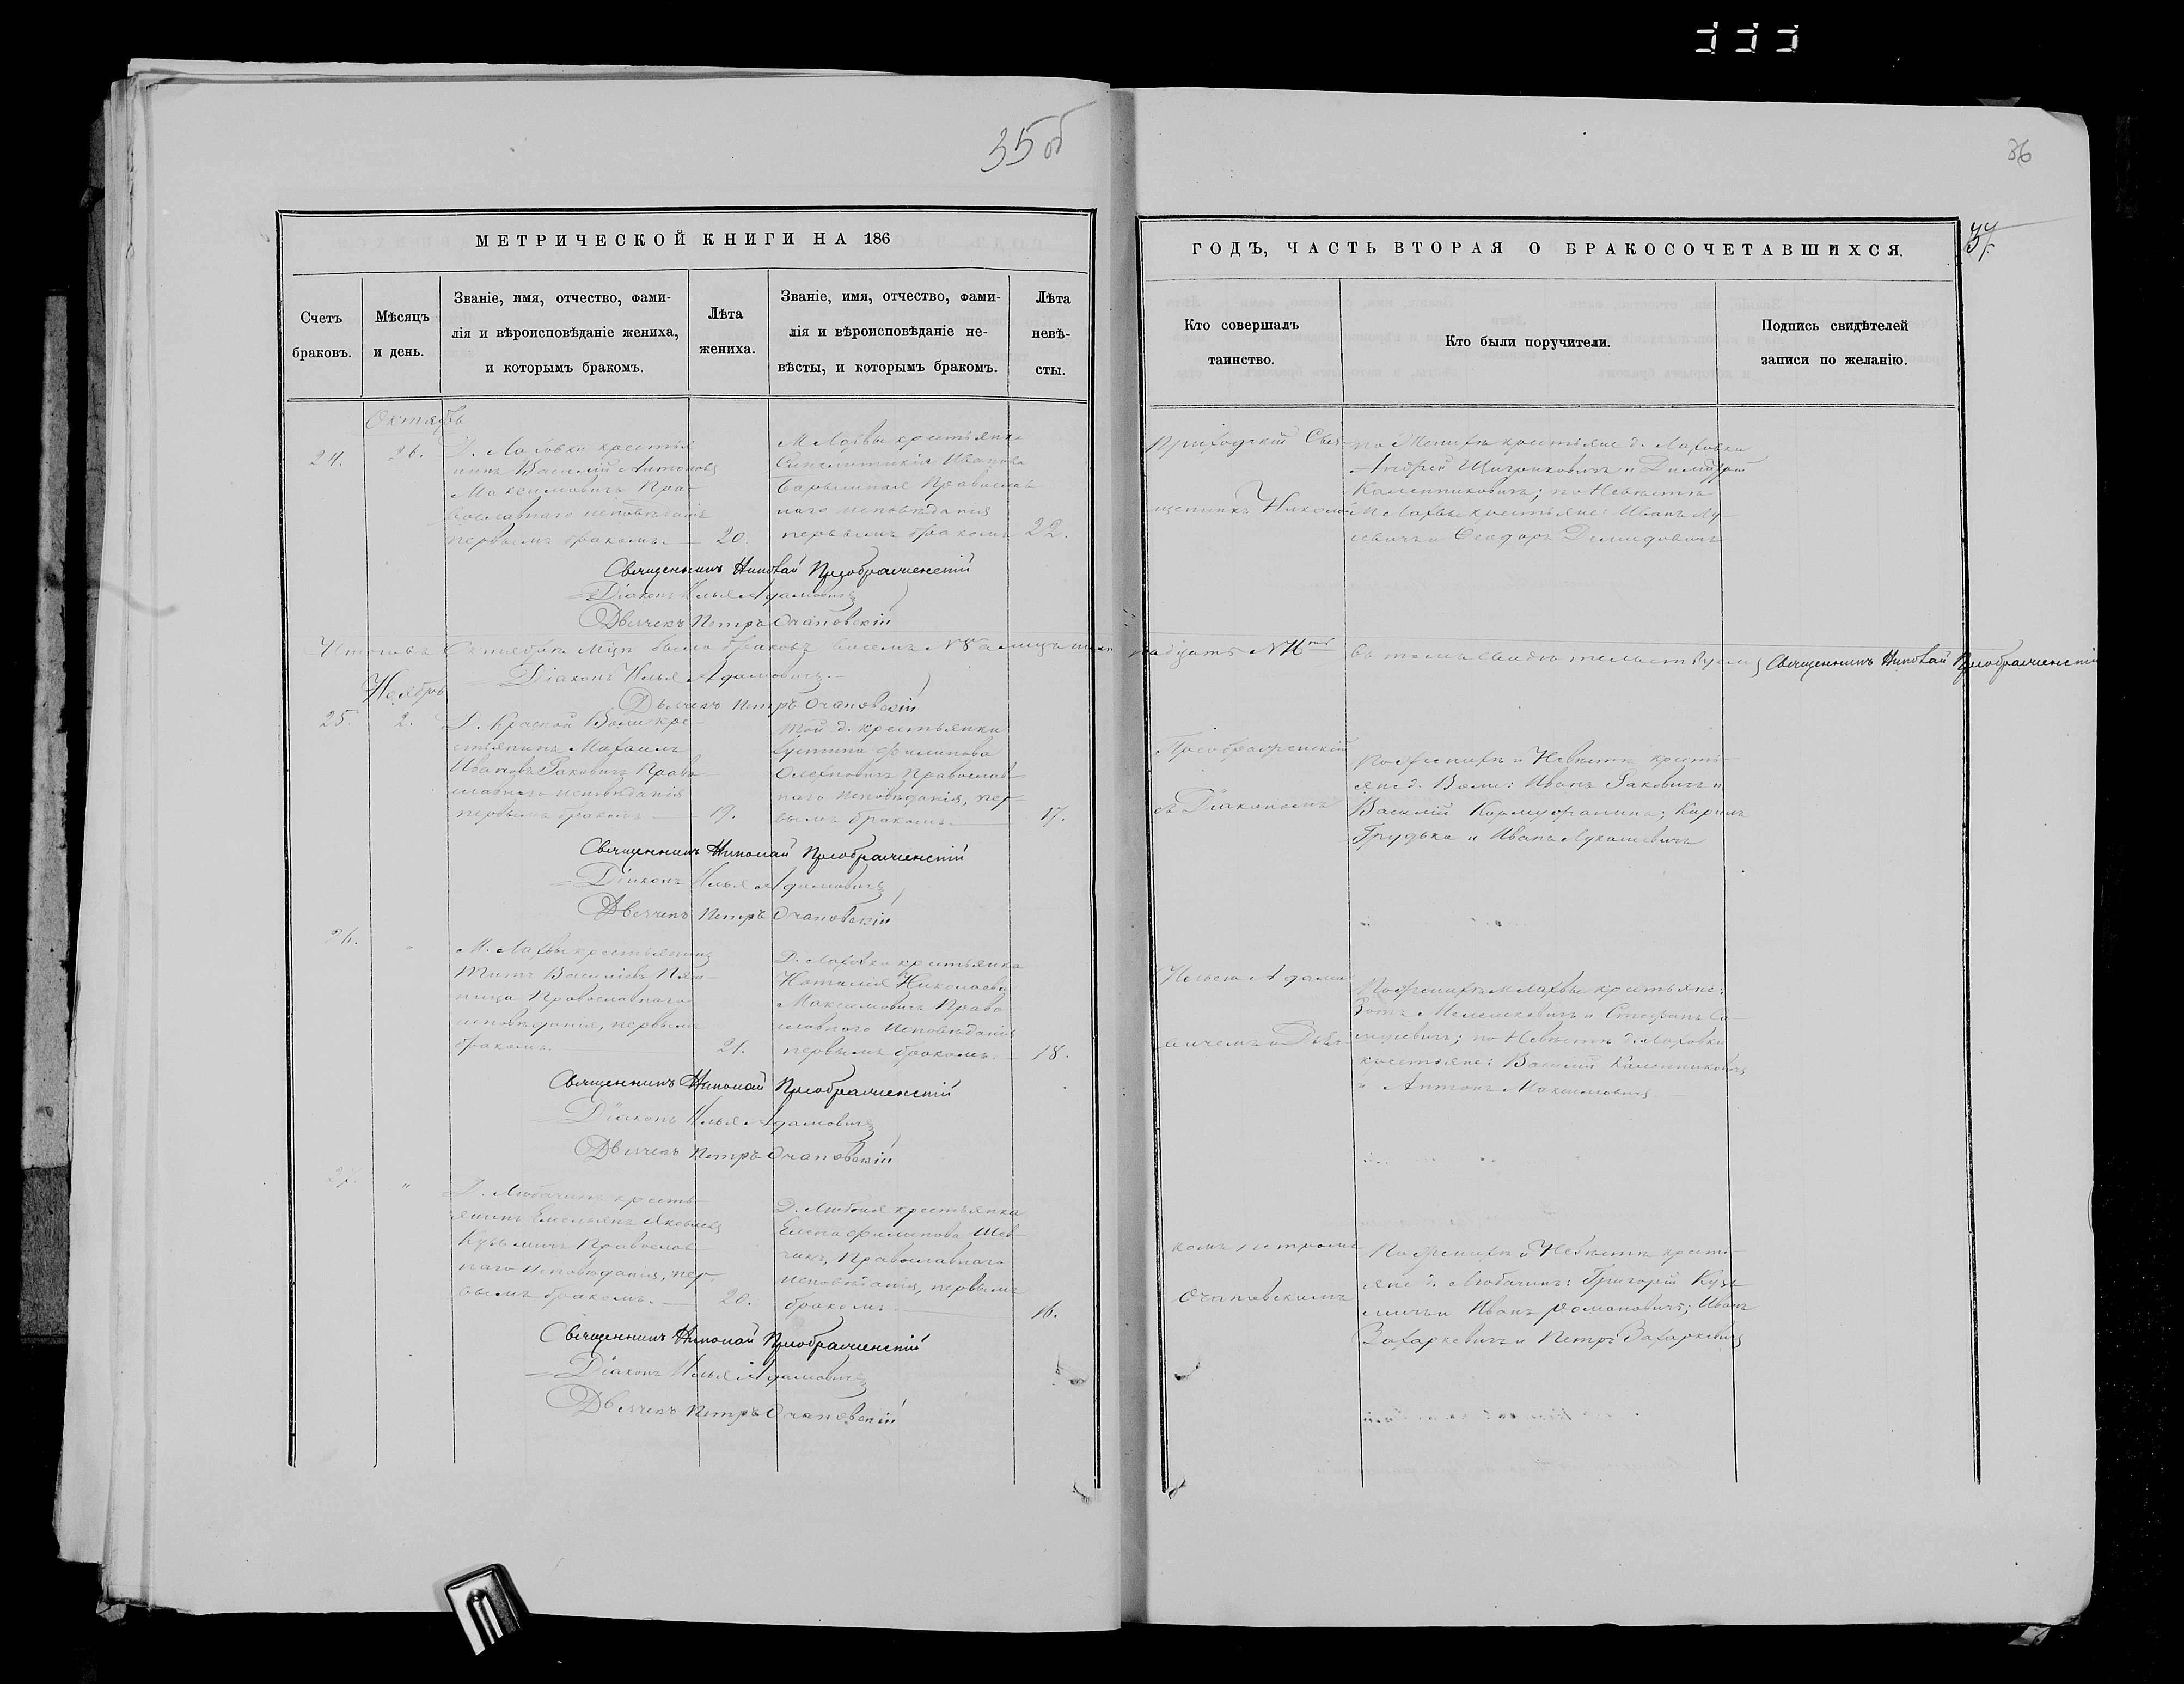 35 об
36
37.
МЕТРИЧЕСКОЙ КНИГИ НА 186
Счетъ
браковъ.
Мѣсяцъ
и день.
Званіе, имя, отчество, фами-
лія и вѣроисповѣданіе жениха,
и которымъ бракомъ.
Лѣта
жениха.
Званіе, имя, отчество, фами-
лія и вѣроисповѣданіе не-
вѣсты, и которымъ бракомъ.
Лѣта
невѣ-
сты.
ГОДЪ, ЧАСТЬ ВТОРАЯ О БРАКОСОЧЕТАВШИХСЯ.
Кто совершалъ
таинство.
Кто были поручители.
Подпись свидѣтелей
записи по желанію.
Октябрь
24.
26.
Д. Лаховки крестья
нинъ Василій Антоновъ
Максимовичъ Пра-
вославнаго исповѣданія
первымъ бракомъ.
20.
М Лахвы крестьянка
Синклитикія Иванова
Православ
наго исповѣданія
первымъ бракомъ
22.
Приходскій Свя-
щенникъ Николай
по Женихѣ крестьяне д. Лаховки
Андрей и Димитрій
Каленниковичъ; по Невѣстѣ
М Лахвы крестьяне: Иванъ
и Ѳеодоръ Демидовичъ
Священникъ Николай Преображенскій
Діаконъ Илья Адамовичъ
Дьячекъ Петръ Очаповскій
Итого въ Октябрѣ мцѣ было браковъ восемъ N 8 а лицъ шест
надцать N 16ть
въ томъ свидѣтельствуемъ Священникъ Николай Преображенскій
Діаконъ Илья Адамовичъ
Дьячекъ Петръ Очаповскій
Ноябрь
25.
2.
Д. Красной Воли кре-
стьянинъ Михаилъ
Ивановъ Раковичъ Право-
славнаго исповѣданія
первымъ бракомъ
19.
Той д. крестьянка
Іустина Филипова
Олехновичъ Православ
наго исповѣданія, пер-
вымъ бракомъ.
17.
Преображенскій
съ Діакономъ
По Женихѣ и Невѣстѣ кресть-
яне д. Воли: Иванъ Раковичъ и
Василій ; Кирилъ
Грудько и Иванъ Лукашевичъ
Священникъ Николай Преображенскій
Діаконъ Илья Адамовичъ
Дьячекъ Петръ Очаповскій
26.
"
М. Лахвы крестьянинъ
Титъ Василіевъ Пят-
ница Православнаго
исповѣданія, первымъ
бракомъ.
21.
Д. Лаховки крестьянка
Наталія Николаева
Максимовичъ Право
славнаго исповѣданія
первымъ бракомъ.
18.
Ильею Адамо
вичемъ и Дьяч
По Женихѣ м Лахвы крестьяне:
Зотъ Мелешкевичъ и Стефанъ
; по Невѣстѣ д. Лаховки
крестьяне: Василій Каленниковичъ
и Антонъ Максимовичъ
Священникъ Николай Преображенскій
Діаконъ Илья Адамовичъ
Дьячекъ Петръ Очаповскій
27.
"
Д. Любачинъ кресть-
янинъ Емельянъ Яковлевъ
Кузьмичъ Православ
наго исповѣданія, пер-
вымъ бракомъ.
20.
Д. крестьянка
Елена Филипова Шев
чикъ, Православнаго
исповѣданія, первымъ
бракомъ
16.
комъ Петромъ
Очаповскимъ
По Женихѣ и Невѣстѣ кресть-
яне д. Любачинъ: Григорій Кузь
мичъ и Иванъ Романовичъ; Иванъ
Захаркевичъ и Петръ Захаркевичъ
Священникъ Николай Преображенскій
Діаконъ Илья Адамовичъ
Дьячекъ Петръ Очаповскій